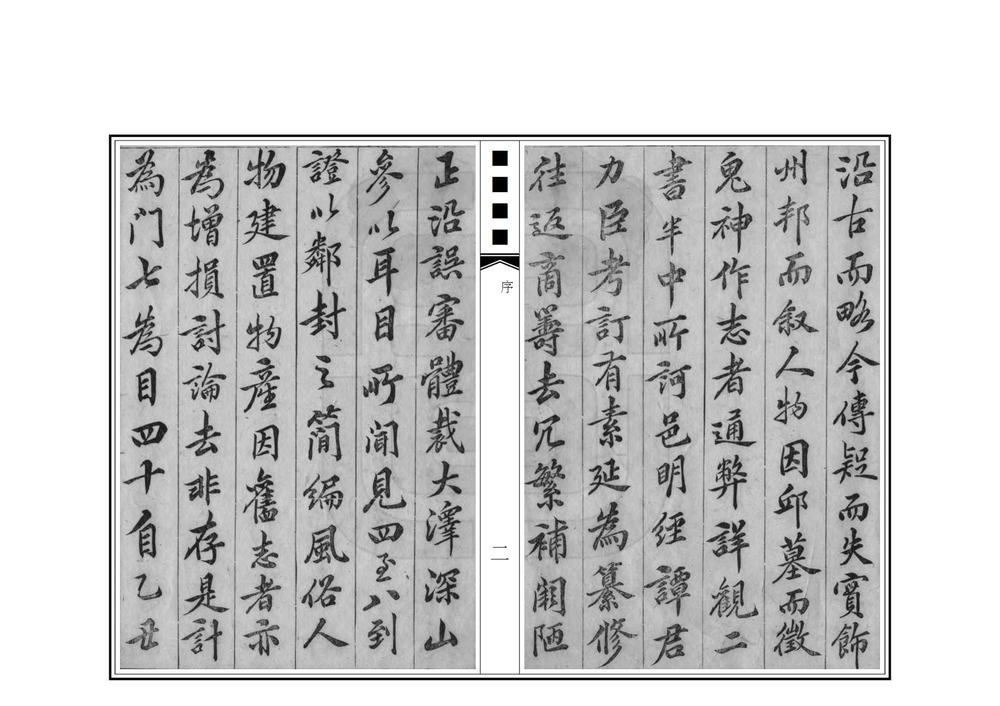 沿古而略今傳疑而失實飾
州邦而叙人物因邱墓而徵
鬼神作志者通弊詳觀二
書半中所訶邑明經譚君
力臣考訂有素延為纂修
往返商籌去冗繁補闕陋
序
二
正沿誤審體裁大澤深山
參以耳目所聞見四至八到
證以鄰封之簡編風俗人
物建置物產因舊志者亦
為增損討論去非存是計
為門七為目四十自乙丑